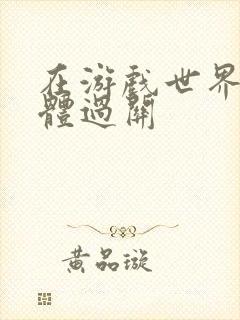 在游戏世界
體過關
黄品璇